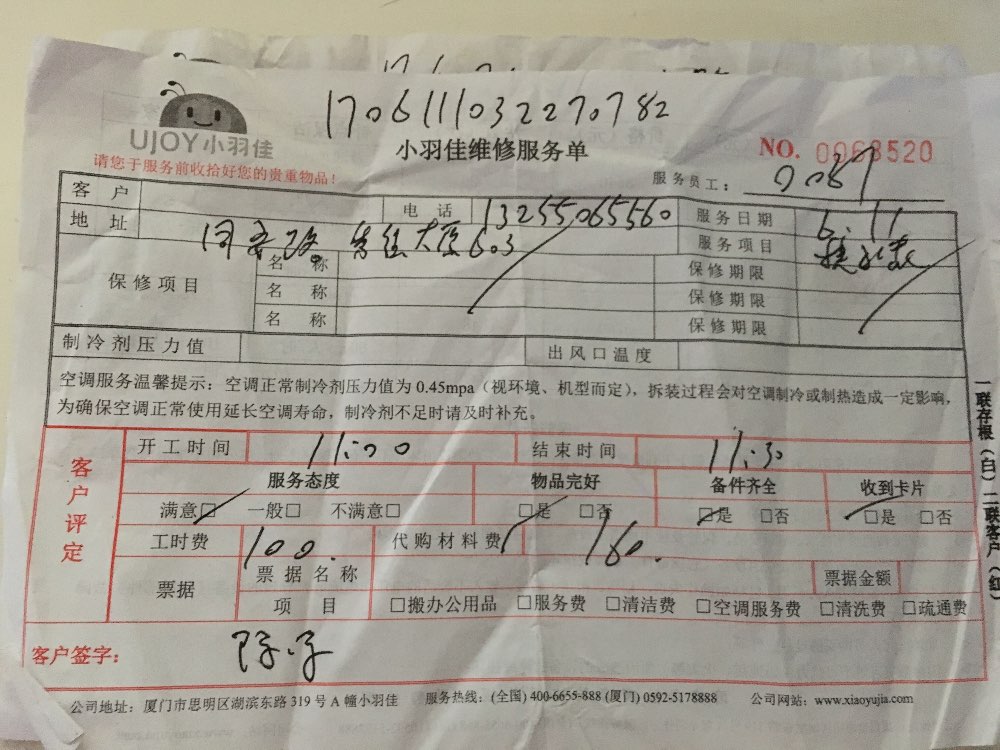 170611103227078​2
UJOY小羽佳
小羽佳维修服务单
NO. 0068520
请您于服务前收拾好您的贵重物品!
服务员工: 0089
客户 电话 13255065560 服务日期 6.11
地址 603 服务项目 换水表
保修项目 名称 保修期限
名称 保修期限
名称 保修期限
制冷剂压力值 出风口温度
空调服务温馨提示：空调正常制冷剂压力值为 0.45mpa（视环境、机型而定），拆装过程会对空调制冷或制热造成一定影响，
为确保空调正常使用延长空调寿命，制冷剂不足时请及时补充。
客户评定
开工时间 11:00 结束时间 11:30
服务态度 物品完好 备件齐全 收到卡片
满意□ 一般□ 不满意□ □是 □否 □是 □否 □是 □否
工时费 100. 代购材料费 160.
票据 票据名称 票据金额
项目 □搬办公用品 □服务费 □清洁费 □空调服务费 □清洗费 □疏通费
客户签字：
公司地址：厦门市思明区湖滨东路 319 号 A 幢小羽佳 服务热线：(全国) 400-6655-888 (厦门) 0592-5178888 公司网站：www.xiaoyujia.com
一联存根（白）二联客户（红）